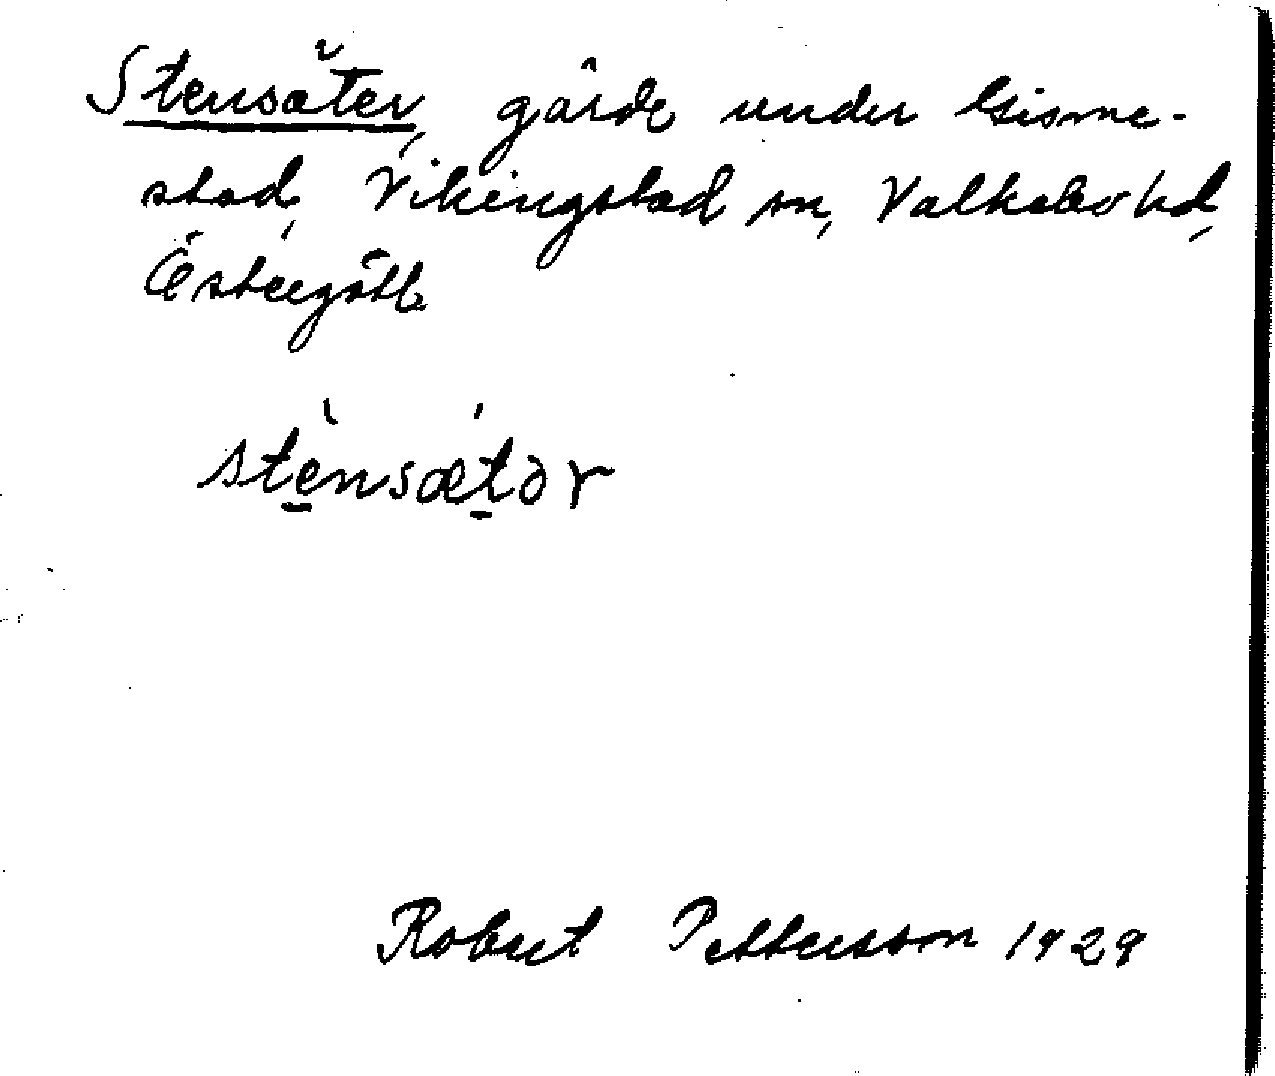 Stensäter, gärde under Gisme-
stad, Vikingstad sn, Valkebo hd,
Östergötl.
stènsætər
Robert Pettersson 1929